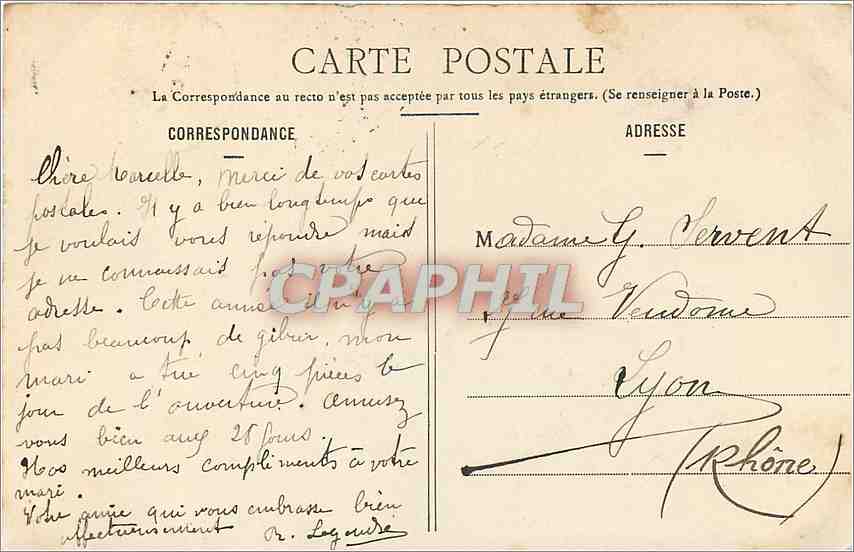 CARTE POSTALE
La Correspondance au recto n'est pas acceptée par tous les pays étrangers. (Se renseigner à la Poste.)
CORRESPONDANCE
Chère Marcelle, merci de vos cartes
postales. Il y a bien longtemps que
je voulais vous répondre mais
je ne connaissais pas votre
adresse. Cette année il n'y a
pas beaucoup de gibier, mon
mari a tué cinq pièces le
jour de l'ouverture. Amusez
vous bien aux 28 jours.
Nos meilleurs compliments à votre
mari.
Votre amie qui vous embrasse bien
affectueusement R. Legendre
ADRESSE
Madame G. Servent
rue Vendome
Lyon
(Rhône)
CPAPHIL